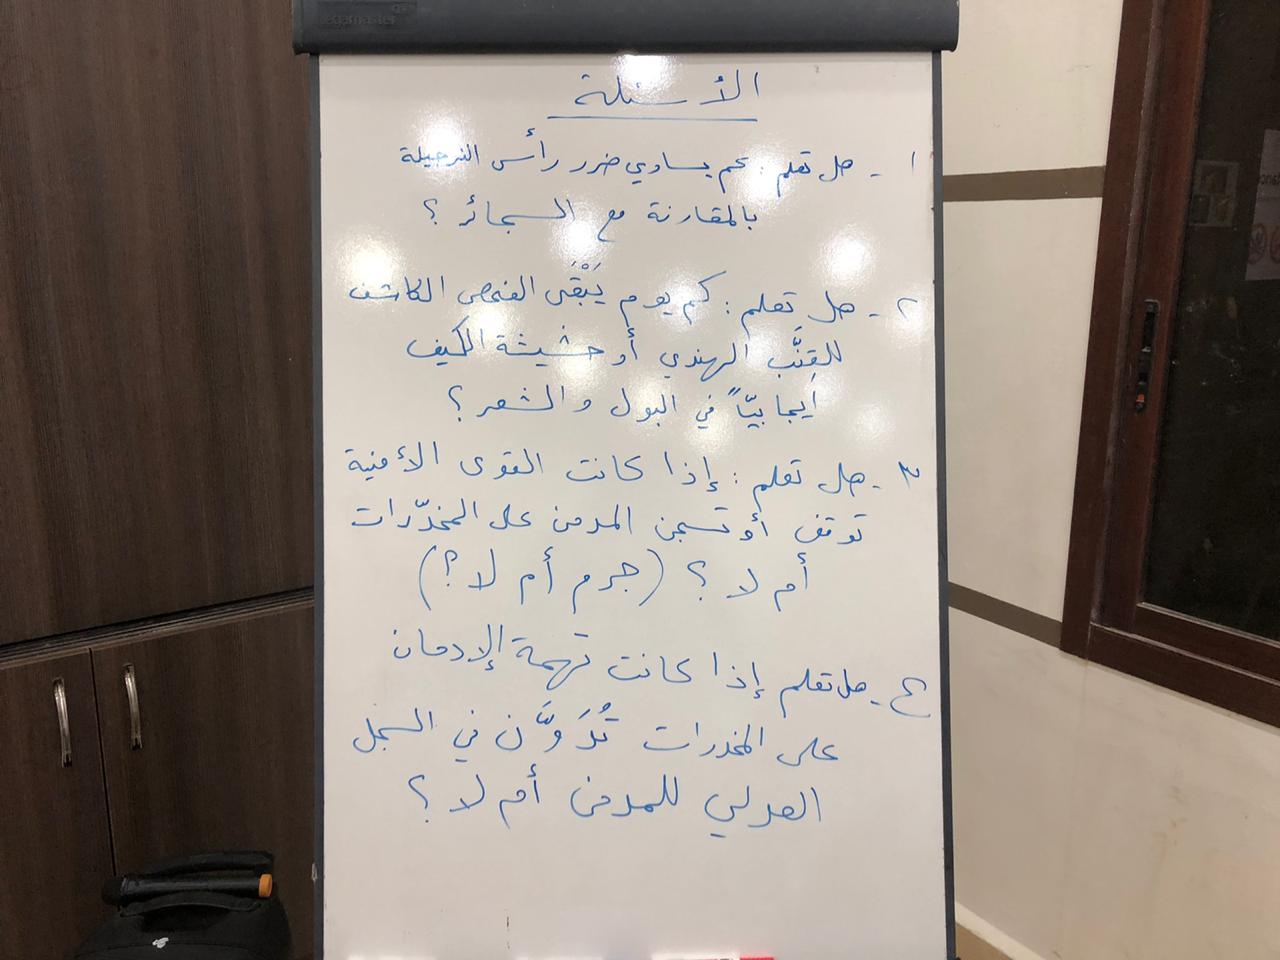 legamaster
الأسئلة
١ - هل تعلم: كم يساوي ضرر رأس النرجيلة
بالمقارنة مع السجائر ؟
٢ - هل تعلم: كم يوم يَبْقَى الفحص الكاشف
للقِنَّب الهندي أو حشيشة الكيف
إيجابيّاً في البول والشعر ؟
٣ - هل تعلم: إذا كانت القوى الأمنية
توقف أو تسجن المدمن على المخدّرات
أم لا ؟ (جرم أم لا ؟)
٤ - هل تعلم إذا كانت تهمة الإدمان
على المخدرات تُدَوَّن في السجل
العدلي للمدمن أم لا ؟